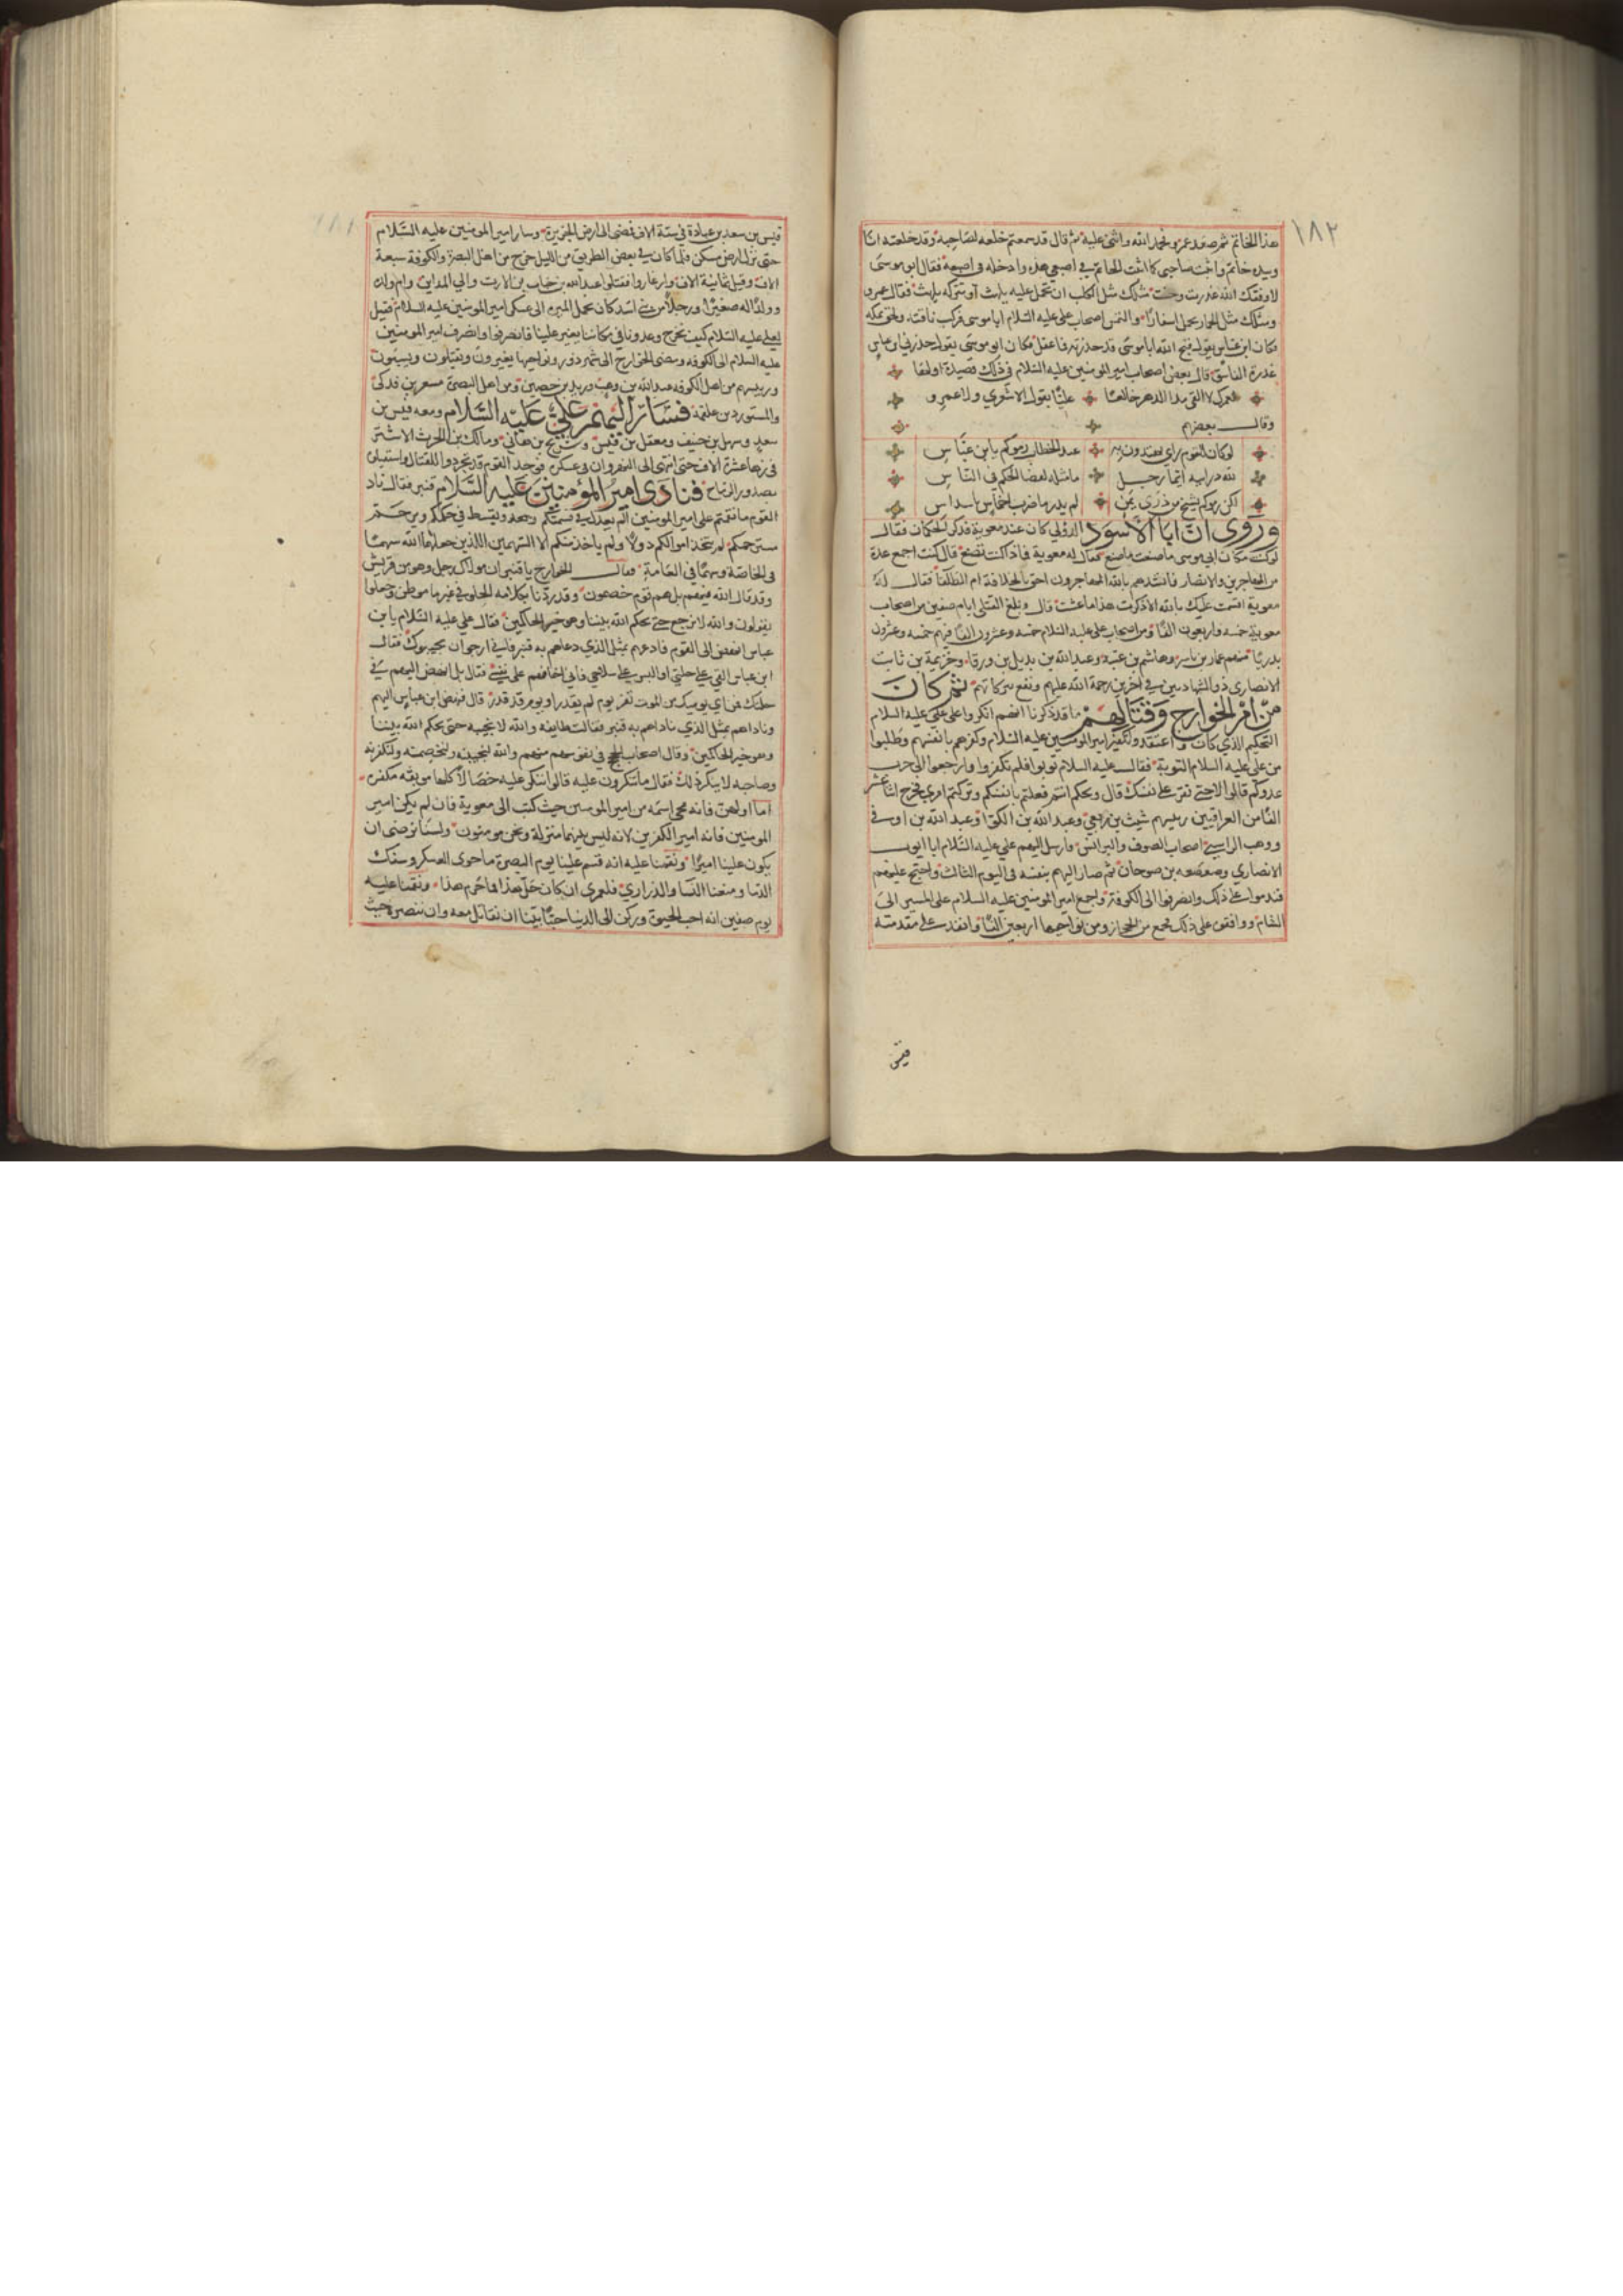 ١٨٢
هذا الخاتم ثم صعد عمرو فحمد الله واثنى عليه ثم قال قد سمعتم خلعه لصاحبه وقد خلعته انا
وبيده خاتم واثبت صاحبي كما اثبت الخاتم في اصبعي هذه وادخله في اصبعه فقال ابو موسى
لا وفقك الله غدرت وخنت مثلك مثل الكلب ان تحمل عليه يلهث او تتركه يلهث فقال عمرو
ومثلك مثل الحمار يحمل اسفارًا والتمس اصحاب علي عليه السلام ابا موسى فركب ناقته ولحق بمكه
فكان ابن عباس يقول قبح الله ابا موسى قد حذرته فما عقل فكان ابو موسى يقول حذرني ابن عباس
غدرة الفاسق قال بعض اصحاب امير المؤمنين عليه السلام في ذلك قصيدة اولها
لعمرك لا القى مدا الدهر خالعا عليًا بقول الاشعري ولا عمرو
وقال بعضهم
لو كان للقوم راي يعتدون به عند الخطاب رموكم بابن عباس
لله در ابيه ايما رجل ما مثله لفصل الحكم في الناس
لكن رموكم بشيخ من ذرى يمن لم يدر ما ضرب اخماس باسداس
وروى ان ابا الاسود الدؤلي كان عند معوية فذكر الحكمان فقال
لو كنت مكان ابي موسى ما صنعت ما صنع فقال له معوية فماذا كنت تصنع قال كنت اجمع عدة
من المهاجرين والانصار فانشدهم بالله المهاجرون احق بالخلافة ام الطلقا فقال له
معوية اقسمت عليك بالله الا ذكرت هذا ما عشت قال وبلغ القتلى ايام صفين من اصحاب
معوية خمسه واربعون الفا ومن اصحاب علي عليه السلام خمسه وعشرون الفا فيهم خمسه وعشرون
بدريا منهم عمار بن ياسر وهاشم بن عتبه وعبد الله بن بديل بن ورقا وخزيمة بن ثابت
الانصاري ذو الشهادتين في اخرين رحمة الله عليهم ونفع ببركاتهم ثم كان
من امر الخوارج وقتالهم ما قد ذكرنا انهم انكروا على علي عليه السلام
التحكيم الذي كان واعتقدوا تكفير امير المؤمنين عليه السلام وكفرهم بانفسهم وطلبوا
من علي عليه السلام التوبة فقال عليه السلام توبوا فلم تكفروا وارجعوا الى حرب
عدوكم قالوا لا حتى تقر على نفسك قال ويحكم انتم فعلتم بانفسكم وتركتم امري فخرج اثنا عشر
الفا من العراقيين رئيسهم شبث بن ربعي وعبد الله بن الكوا وعبد الله بن اوس في
ووهب الراسبي اصحاب الصوف والبرانس فارسل اليهم علي عليه السلام ابا ايوب
الانصاري وصعصعه بن صوحان ثم صار اليهم بنفسه في اليوم الثالث واحتج عليهم
فندموا على ذلك وانصرفوا الى الكوفة واجمع امير المؤمنين عليه السلام على المسير الى
الشام ووافقوه على ذلك فجمع من الحجاز ومن نواحيها اربعين الفا وانفذ على مقدمته
قيس
١٨١
قيس بن سعد بن عبادة في ستة الاف فمضى الى ارض الجزيرة وسار امير المؤمنين عليه السلام
حتى نزل ارض مسكن فلما كان في بعض الطريق من الليل خرج من اهل البصرة والكوفة سبعة
الاف وقيل ثمانية الاف واغاروا فقتلوا عبد الله بن خباب بن الارت والي المداين وام ولده
وولدًا له صغيرًا ورجلاً من بني اسد كان يحمل الميره الى عسكر امير المؤمنين عليه السلام فقيل
لعلي عليه السلام كيف نخرج وعدونا في مكاننا يغير علينا فانصرفوا وانصرف امير المؤمنين
عليه السلام الى الكوفه ومضى الخوارج الى شهرزور ونواحيها يغيرون ويقتلون ويسبون
ورئيسهم من اهل الكوفه عبد الله بن وهب وزيد بن حصين ومن اهل البصرة مسعر بن فدكي
والمستورد بن علقمة فسار اليهم علي عليه السلام ومعه قيس بن
سعد وسهل بن حنيف ومعقل بن قيس وشريح بن هاني ومالك بن الحرث الاشتر
في زها عشرة الاف حتى انتهى الى النهروان في عسكره فوجد القوم قد تجردوا للقتال واستقبلوه
بصدور الرماح فنادى امير المؤمنين عليه السلام قنبر فقال ناد
القوم ما نقمتم على امير المؤمنين الم يعدل في قسمتكم ويقسط في حكمكم ويرحم
مسترحمكم لم يتخذ اموالكم دولاً ولم ياخذ منكم الا السهمين اللذين جعلهما الله سهما
في الخاصة وسهما في العامة فقال الخوارج يا قنبر ان مولاك رجل وهو من قريش
وقد قال الله فيهم بل هم قوم خصمون وقد ردنا بكلامه الحلو في غير ما موطن وجعلوا
يقولون والله لا نرجع حتى يحكم الله بيننا وهو خير الحاكمين فقال علي عليه السلام يا ابن
عباس انهض الى القوم فادعهم بمثل الذي دعاهم به قنبر فاني ارجو ان يجيبوك فقال
ابن عباس القي علي حلتي او البس علي سلاحي فاني اخافهم على نفسي فقال بل انهض اليهم في
حلتك فمن اي يوميك من الموت تفر يوم لم يقدر او يوم قد قدر قال فنهض ابن عباس اليهم
وناداهم بمثل الذي ناداهم به قنبر فقالت طايفه والله لا نجيبه حتى يحكم الله بيننا
وهو خير الحاكمين وقال اصحاب الحجج في نفوسهم منهم والله لنجيبنه ولنخصمنه ولنكفرنه
وصاحبه لا ينكر ذلك فقال ما تنكرون عليه قالوا ننكر عليه خصالاً كلها موبقه مكفره
اما اولهن فانه محى اسمه من امير المؤمنين حيث كتب الى معوية فان لم يكن امير
المؤمنين فانه امير الكفرين لانه ليس بينهما منزلة ونحن مومنون ولسنا نرضى ان
يكون علينا اميرًا ونقمنا عليه انه قسم علينا يوم البصرة ما حوى العسكر وسفك
الدما ومنعنا النسا والذراري فلعمري ان كان حل هذا فما حرم هذا ونقمنا عليه
يوم صفين انه احب الحيوة وركن الى الدنيا حيث ابينا ان نقاتل معه وان ننصره حيث